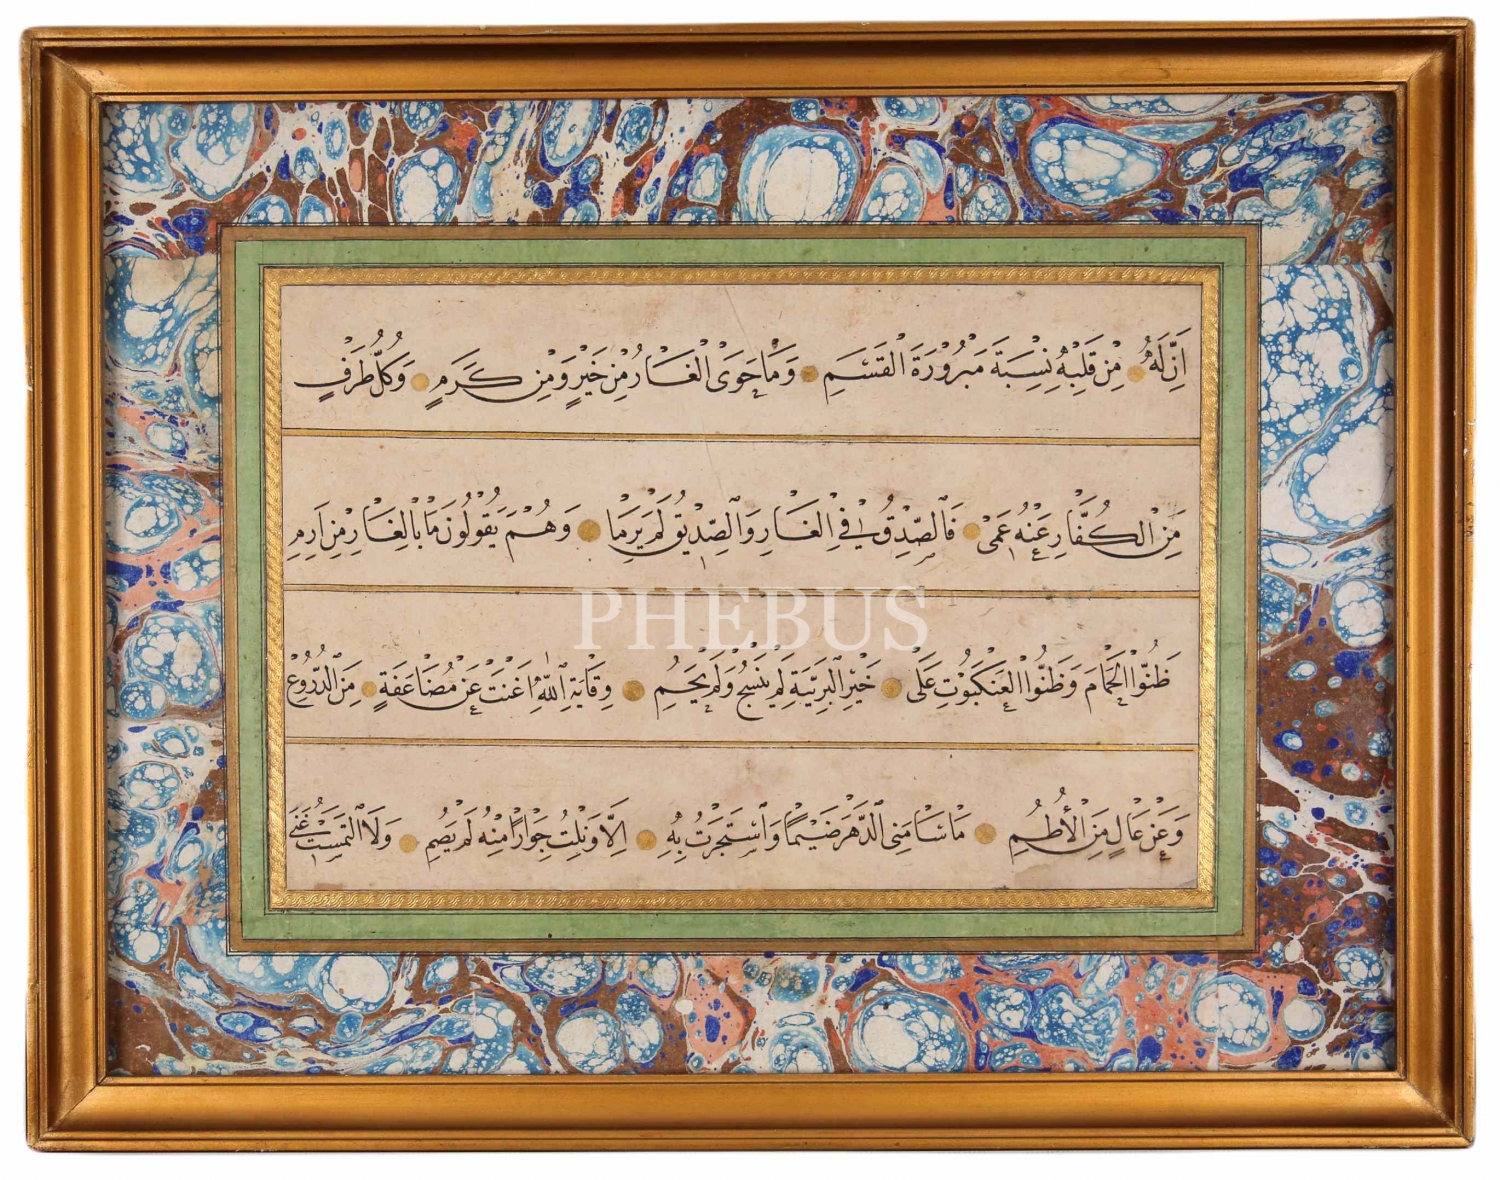 اِنَّ لَهُ مِنْ قَلْبِهٖ نِسْبَةً مَبْرُورَةَ الْقَسَمِ وَمَا حَوَى الْغَارُ مِنْ خَيْرٍ وَمِنْ كَرَمٍ وَكُلُّ طَرْفٍ
مِنَ الْكُفَّارِ عَنْهُ عَمِى فَالصِّدْقُ فِى الْغَارِ وَالصِّدِّيقُ لَمْ يَرِمَا وَهُمْ يَقُولُونَ مَا بِالْغَارِ مِنْ اَرِمِ
ظَنُّوا الْحَمَامَ وَظَنُّوا الْعَنْكَبُوتَ عَلَى خَيْرِ الْبَرِيَّةِ لَمْ يَنْسُجْ وَلَمْ يَحُمِ
PHEBUS
وِقَايَةُ اللّٰهِ اَغْنَتْ عَنْ مُضَاعَفَةٍ مِنَ الدُّرُوعِ
وَعَنْ عَالٍ مِنَ الْأُطُمِ مَا سَامَنِى الدَّهْرُ ضَيْمًا وَاسْتَجَرْتُ بِهٖ اِلَّا وَنِلْتُ جِوَارًا مِنْهُ لَمْ يُضَمِ وَلَا الْتَمَسْتُ غِنَى